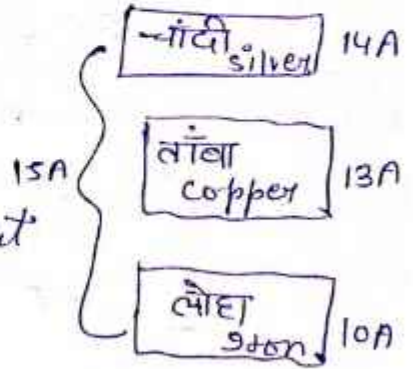 चांदी
silver 14A
15A
तांबा
copper 13A
लोहा
Iron 10A